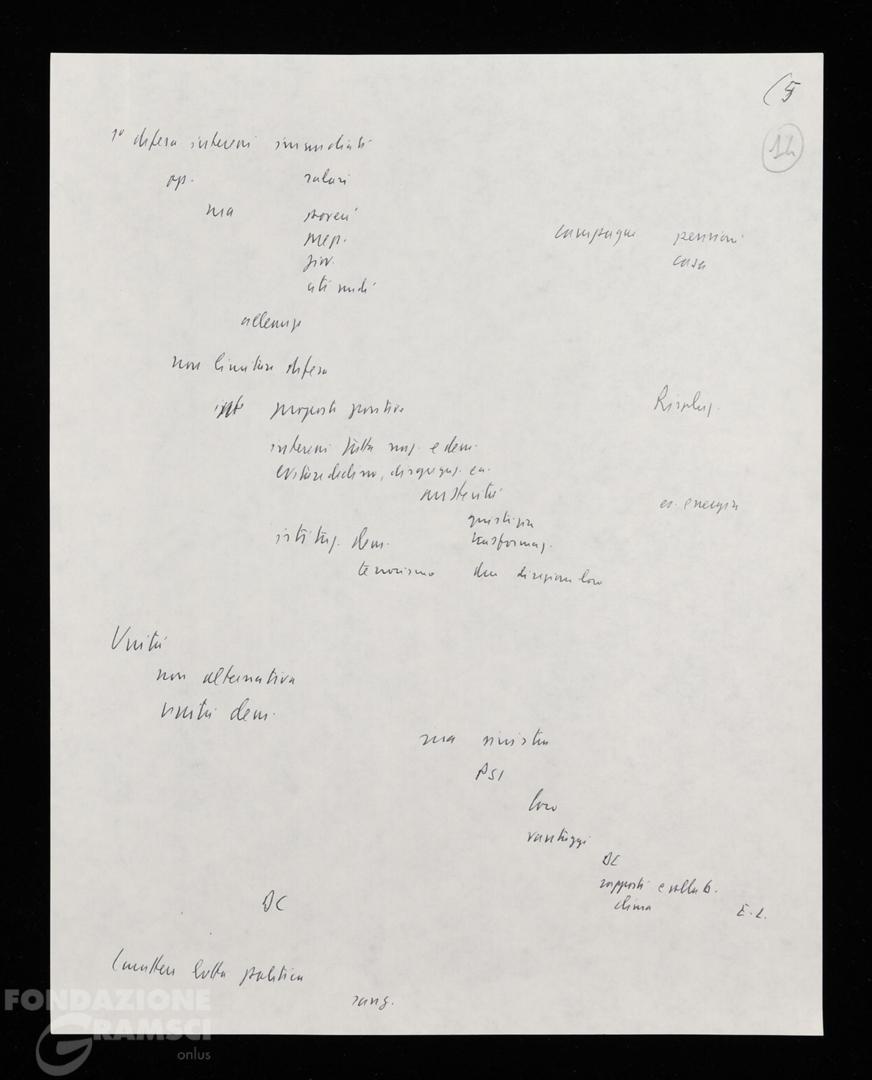 (5
14
1° difesa interessi immediati
op. salari
ma poveri
mep. campagne pensioni
giov. casa
ceti medi
alleanze
non limitare difesa
proposte positive Risoluz.
interessi tutta naz. e dem.
evitare declino, disgregaz. ec.
austerità es. energia
giustizia
istituz. dem. trasformaz.
terrorismo due direzioni loro
Unità
non alternativa
unità dem.
ma sinistra
PSI
loro
vantaggi
DC
rapporti e collab.
DC clima E.L.
Carattere lotta politica
sang.
FONDAZIONE
GRAMSCI
onlus